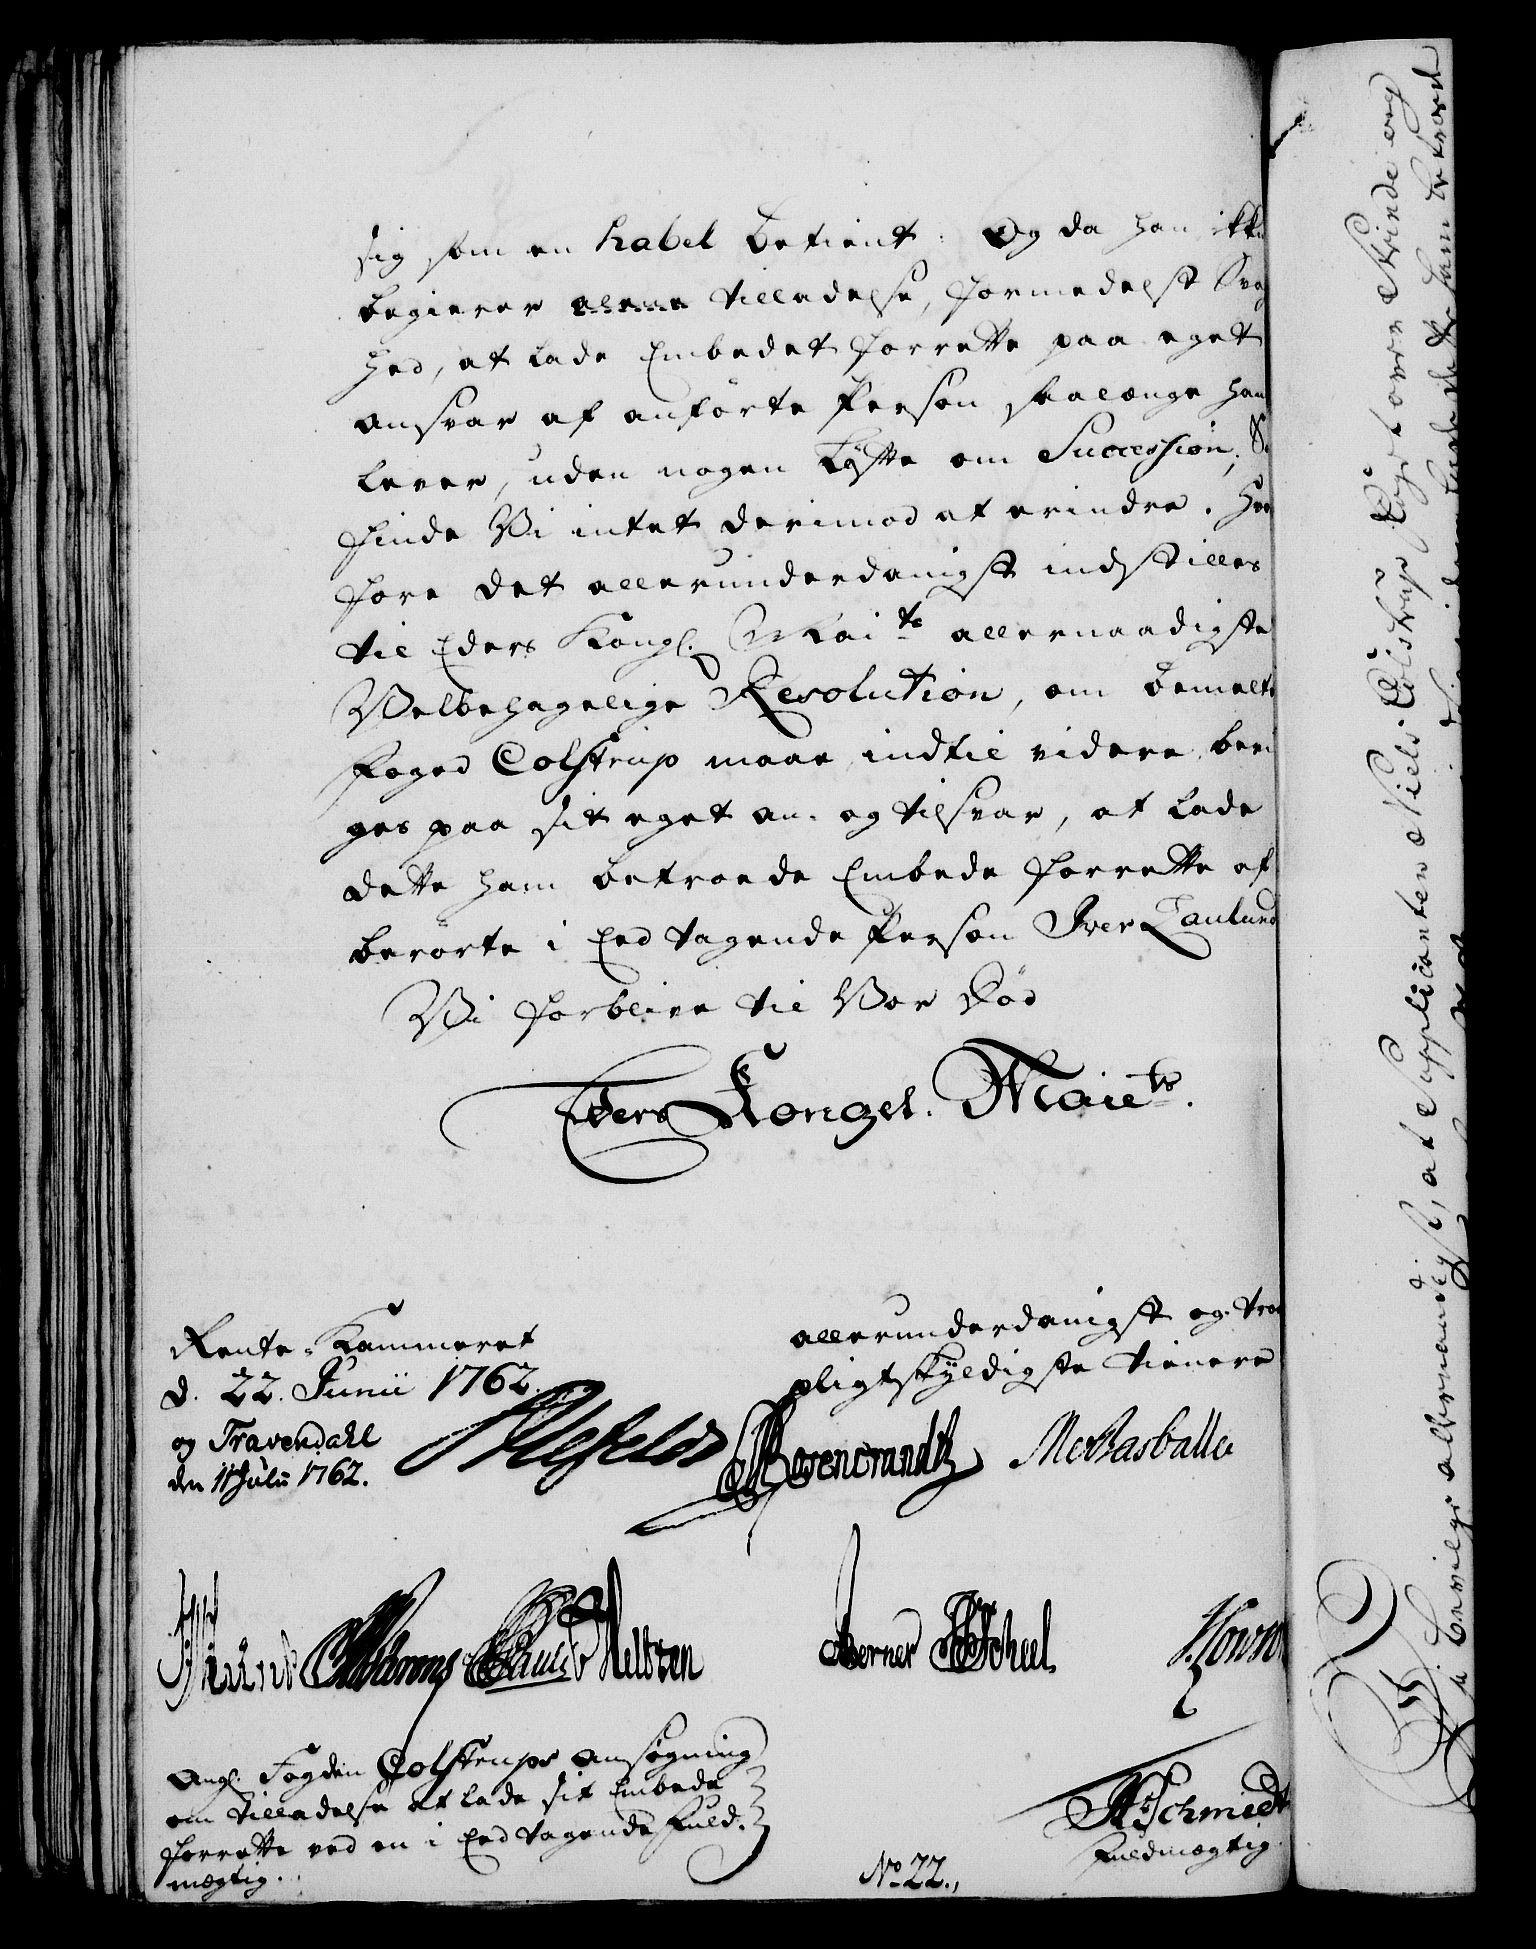 sig som en habel betient. Og da han ikke
begierer tilladelse, formedelst Svag
hed, at lade Embedet forrette paa eget
ansvar af anførte Person saalænge han
lever, uden nogen Løfte om Succession, Saa
finde Vi intet derimod at erindre. Hvor
fore det allerunderdanigst indstilles
til Eders Kongl. Mai.ts allernaadigste
Velbehagelige Resolution, om bemelte
Foged Colstrup maae indtil videre bevil
ges paa sit eget an- og tilsvar, at lade
dette ham betroede Embede forrette af
berørte i Eed tagende Person Iver Laulund
Vi forblive til Vor Død
Eders Kongel. Maiets.
Rente-Kammeret
d. 22. Junii 1762.
og Travendahl
den 11 Julii 1762.
allerunderdanigst og troe
pligtskyldigste tienere
Alefeld Rosencrandtz
Berner Scheel
Angl. Fogden Colstrups Ansøgning
om tilladelse at lade sit Embede
forrette ved en i Eed tagende Fuld-
mægtig.
Schmidt
Fuldmægtig
No. 22.
Vi bevilge allernaadigst, at Supplicanten Niels Colstrup, Foget over Strinde og